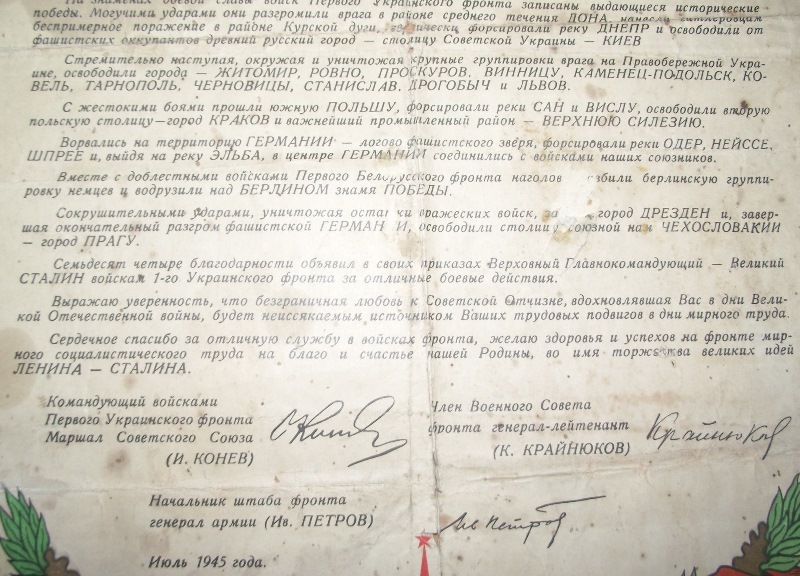 На знаменах боевой славы войск Первого Украинского фронта записаны выдающиеся исторические
победы. Могучими ударами они разгромили врага в районе среднего течения ДОНА, нанесли гитлеровцам
беспримерное поражение в районе Курской дуги, форсировали реку ДНЕПР и освободили от
фашистских оккупантов древний русский город — столицу Советской Украины — КИЕВ
Стремительно наступая, окружая и уничтожая крупные группировки врага на Правобережной Укра-
ине, освободили города — ЖИТОМИР, РОВНО, ПРОСКУРОВ, ВИННИЦУ, КАМЕНЕЦ-ПОДОЛЬСК, КО-
ВЕЛЬ, ТАРНОПОЛЬ, ЧЕРНОВИЦЫ, СТАНИСЛАВ, ДРОГОБЫЧ и ЛЬВОВ.
С жестокими боями прошли южную ПОЛЬШУ, форсировали реки САН и ВИСЛУ, освободили вторую
польскую столицу—город КРАКОВ и важнейший промышленный район — ВЕРХНЮЮ СИЛЕЗИЮ.
Ворвались на территорию ГЕРМАНИИ — логово фашистского зверя, форсировали реки ОДЕР, НЕЙССЕ,
ШПРЕЕ и, выйдя на реку ЭЛЬБА, в центре ГЕРМАНИИ соединились с войсками наших союзников.
Вместе с доблестными войсками Первого Белорусского фронта наголову разбили берлинскую группи-
ровку немцев и водрузили над БЕРЛИНОМ знамя ПОБЕДЫ.
Сокрушительными ударами, уничтожая остатки вражеских войск, за город ДРЕЗДЕН и, завер-
шая окончательный разгром фашистской ГЕРМАНИИ, освободили столицу союзной нам ЧЕХОСЛОВАКИИ
— город ПРАГУ.
Семьдесят четыре благодарности объявил в своих приказах Верховный Главнокомандующий — Великий
СТАЛИН войскам 1-го Украинского фронта за отличные боевые действия.
Выражаю уверенность, что безграничная любовь к Советской Отчизне, вдохновлявшая Вас в дни Вели-
кой Отечественной войны, будет неиссякаемым источником Ваших трудовых подвигов в дни мирного труда.
Сердечное спасибо за отличную службу в войсках фронта, желаю здоровья и успехов на фронте мир-
ного социалистического труда на благо и счастье нашей Родины, во имя торжества великих идей
ЛЕНИНА — СТАЛИНА.
Командующий войсками
Первого Украинского фронта
Маршал Советского Союза
(И. КОНЕВ)
Член Военного Совета
фронта генерал-лейтенант
(К. КРАЙНЮКОВ)
Крайнюков
Начальник штаба фронта
генерал армии (Ив. ПЕТРОВ)
Ив Петров
Июль 1945 года.